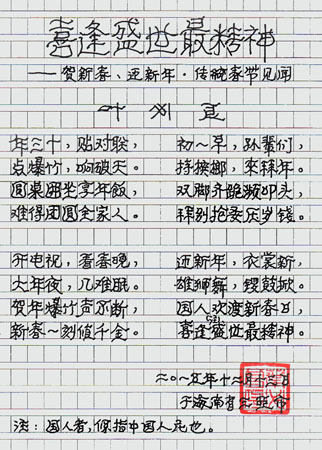 喜逢盛世最精神
——贺新春、迎新年·传统春节见闻
年三十，贴对联，
点爆竹，响破天。
圆桌围坐享年饭，
难得团圆全家人。
初一早，孙辈们，
持槟榔，来拜年。
双脚齐跪频叩头，
拜别抢要压岁钱。
开电视，看春晚，
大年夜，几难眠。
贺年爆竹声不断，
新春一刻值千金。
迎新年，衣裳新，
雄狮舞，锣鼓掀。
国人欢渡新春日，
喜逢盛世最精神。
二〇一五年十二月十二日
于海南省三亚市
注：国人者，系指中国人民也。